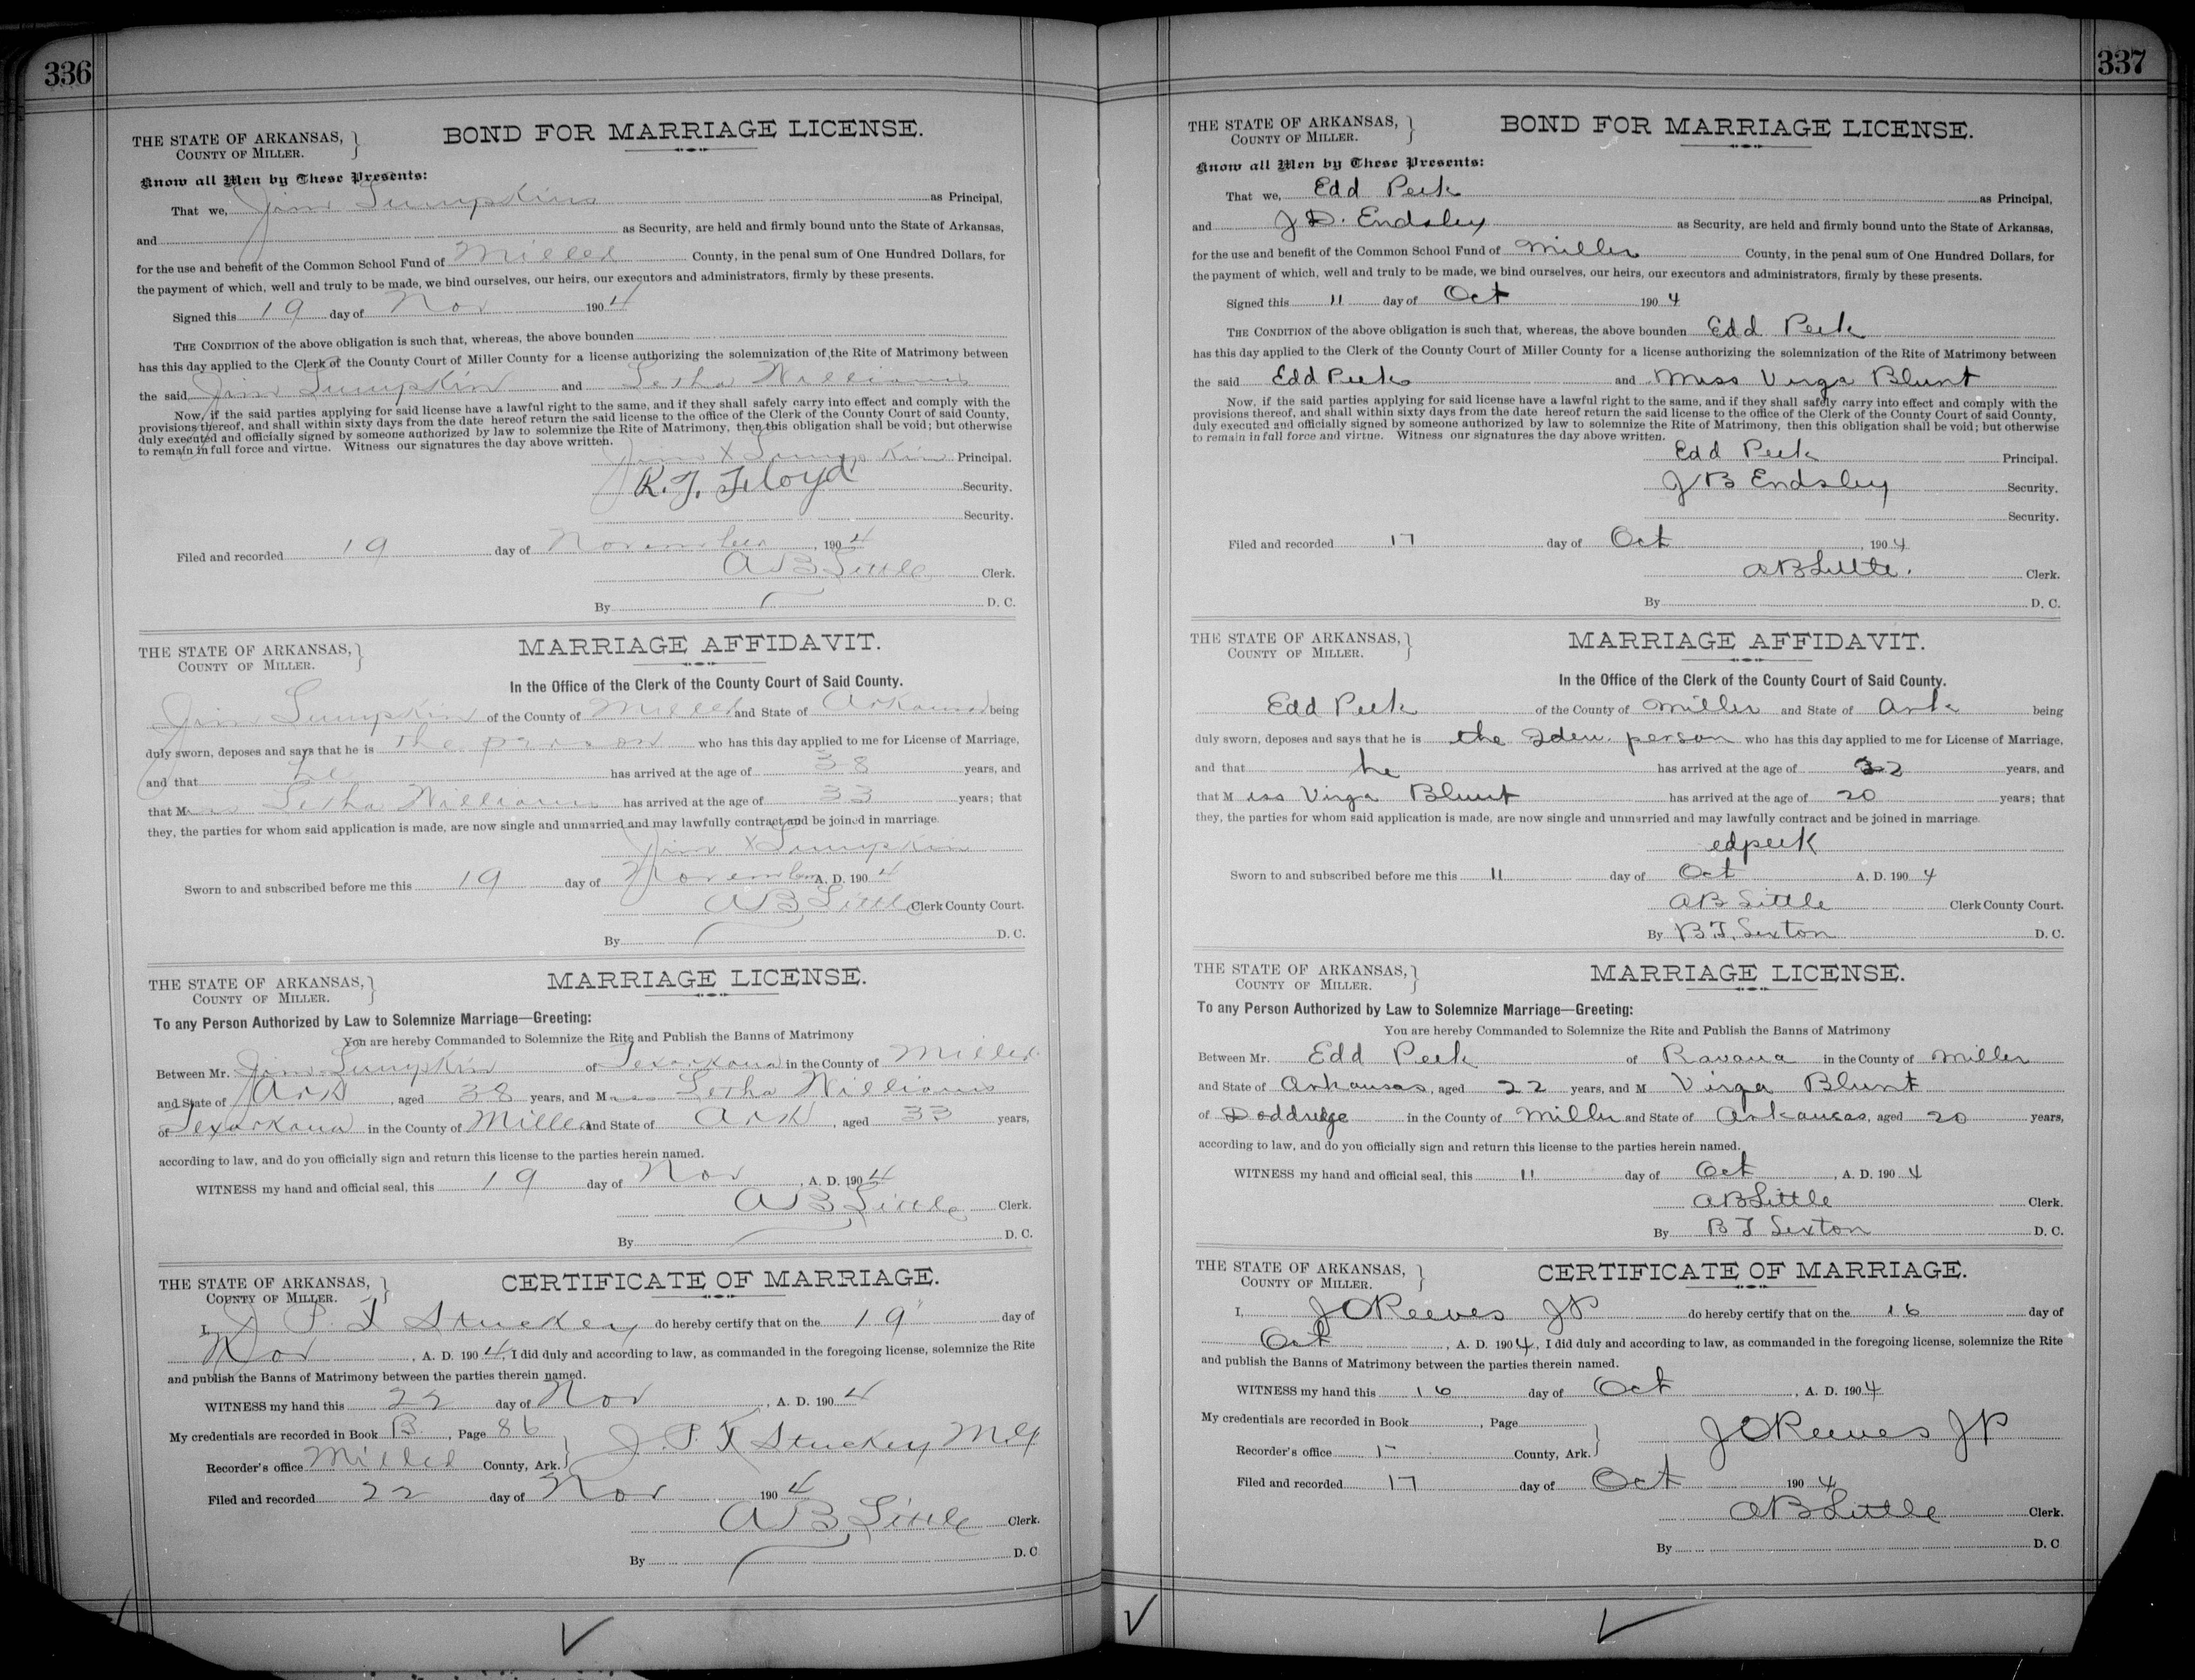 336
THE STATE OF ARKANSAS, }
COUNTY OF MILLER.
BOND FOR MARRIAGE LICENSE.
Know all Men by These Presents:
That we, Jim Lumpkins as Principal,
and as Security, are held and firmly bound unto the State of Arkansas,
for the use and benefit of the Common School Fund of Miller County, in the penal sum of One Hundred Dollars, for
the payment of which, well and truly to be made, we bind ourselves, our heirs, our executors and administrators, firmly by these presents.
Signed this 19 day of Nov 1904
THE CONDITION of the above obligation is such that, whereas, the above bounden
has this day applied to the Clerk of the County Court of Miller County for a license authorizing the solemnization of the Rite of Matrimony between
the said Jim Lumpkin and Letha Williams
Now, if the said parties applying for said license have a lawful right to the same, and if they shall safely carry into effect and comply with the
provisions thereof, and shall within sixty days from the date hereof return the said license to the office of the Clerk of the County Court of said County,
duly executed and officially signed by someone authorized by law to solemnize the Rite of Matrimony, then this obligation shall be void; but otherwise
to remain in full force and virtue. Witness our signatures the day above written.
Jim X Lumpkin Principal.
R. J. Floyd Security.
Security.
Filed and recorded 19 day of November, 1904
A B Little Clerk.
By D. C.
THE STATE OF ARKANSAS, }
COUNTY OF MILLER.
MARRIAGE AFFIDAVIT.
In the Office of the Clerk of the County Court of Said County.
Jim Lumpkin of the County of Miller and State of Arkansas being
duly sworn, deposes and says that he is the person who has this day applied to me for License of Marriage,
and that he has arrived at the age of 38 years, and
that Mrs Letha Williams has arrived at the age of 33 years; that
they, the parties for whom said application is made, are now single and unmarried and may lawfully contract and be joined in marriage.
Jim X Lumpkin
Sworn to and subscribed before me this 19 day of November A. D. 1904
A B Little Clerk County Court.
By D. C.
THE STATE OF ARKANSAS, }
COUNTY OF MILLER.
MARRIAGE LICENSE.
To any Person Authorized by Law to Solemnize Marriage—Greeting:
You are hereby Commanded to Solemnize the Rite and Publish the Banns of Matrimony
Between Mr. Jim Lumpkin of Texarkana in the County of Miller
and State of Ark, aged 38 years, and Mrs Letha Williams
of Texarkana in the County of Miller and State of Ark, aged 33 years,
according to law, and do you officially sign and return this license to the parties herein named.
WITNESS my hand and official seal, this 19 day of Nov, A. D. 1904
A B Little Clerk.
By D. C.
THE STATE OF ARKANSAS, }
COUNTY OF MILLER.
CERTIFICATE OF MARRIAGE.
I, J. P. T Stuckey do hereby certify that on the 19" day of
Nov, A. D. 1904, I did duly and according to law, as commanded in the foregoing license, solemnize the Rite
and publish the Banns of Matrimony between the parties therein named.
WITNESS my hand this 22 day of Nov, A. D. 1904
My credentials are recorded in Book B., Page 86
Recorder's office Miller County, Ark. } J. P. T Stuckey M.G
Filed and recorded 22 day of Nov 1904
A B Little Clerk.
By D. C
337
THE STATE OF ARKANSAS, }
COUNTY OF MILLER.
BOND FOR MARRIAGE LICENSE.
Know all Men by These Presents:
That we, Edd Peek as Principal,
and J D. Endsley as Security, are held and firmly bound unto the State of Arkansas,
for the use and benefit of the Common School Fund of Miller County, in the penal sum of One Hundred Dollars, for
the payment of which, well and truly to be made, we bind ourselves, our heirs, our executors and administrators, firmly by these presents.
Signed this 11 day of Oct 1904
THE CONDITION of the above obligation is such that, whereas, the above bounden Edd Peek
has this day applied to the Clerk of the County Court of Miller County for a license authorizing the solemnization of the Rite of Matrimony between
the said Edd Peek and Miss Virga Blunt
Now, if the said parties applying for said license have a lawful right to the same, and if they shall safely carry into effect and comply with the
provisions thereof, and shall within sixty days from the date hereof return the said license to the office of the Clerk of the County Court of said County,
duly executed and officially signed by someone authorized by law to solemnize the Rite of Matrimony, then this obligation shall be void; but otherwise
to remain in full force and virtue. Witness our signatures the day above written.
Edd Peek Principal.
J B Endsley Security.
Security.
Filed and recorded 17 day of Oct, 1904
A B Little. Clerk.
By D. C.
THE STATE OF ARKANSAS, }
COUNTY OF MILLER.
MARRIAGE AFFIDAVIT.
In the Office of the Clerk of the County Court of Said County.
Edd Peek of the County of Miller and State of Ark being
duly sworn, deposes and says that he is the Iden. person who has this day applied to me for License of Marriage,
and that he has arrived at the age of 22 years, and
that Miss Virga Blunt has arrived at the age of 20 years; that
they, the parties for whom said application is made, are now single and unmarried and may lawfully contract and be joined in marriage.
ed peek
Sworn to and subscribed before me this 11 day of Oct A. D. 1904
A B Little Clerk County Court.
By B T. Sexton D. C.
THE STATE OF ARKANSAS, }
COUNTY OF MILLER.
MARRIAGE LICENSE.
To any Person Authorized by Law to Solemnize Marriage—Greeting:
You are hereby Commanded to Solemnize the Rite and Publish the Banns of Matrimony
Between Mr. Edd Peek of Ravana in the County of Miller
and State of Arkansas, aged 22 years, and M Virga Blunt
of Doddridge in the County of Miller and State of Arkansas, aged 20 years,
according to law, and do you officially sign and return this license to the parties herein named.
WITNESS my hand and official seal, this 11 day of Oct, A. D. 1904
A B Little Clerk.
By B T Sexton D. C.
THE STATE OF ARKANSAS, }
COUNTY OF MILLER.
CERTIFICATE OF MARRIAGE.
I, J O Reeves JP do hereby certify that on the 16 day of
Oct, A. D. 1904, I did duly and according to law, as commanded in the foregoing license, solemnize the Rite
and publish the Banns of Matrimony between the parties therein named.
WITNESS my hand this 16 day of Oct, A. D. 1904
My credentials are recorded in Book, Page
Recorder's office County, Ark. } J O Reeves JP
Filed and recorded 17 day of Oct 1904
A B Little Clerk.
By D. C